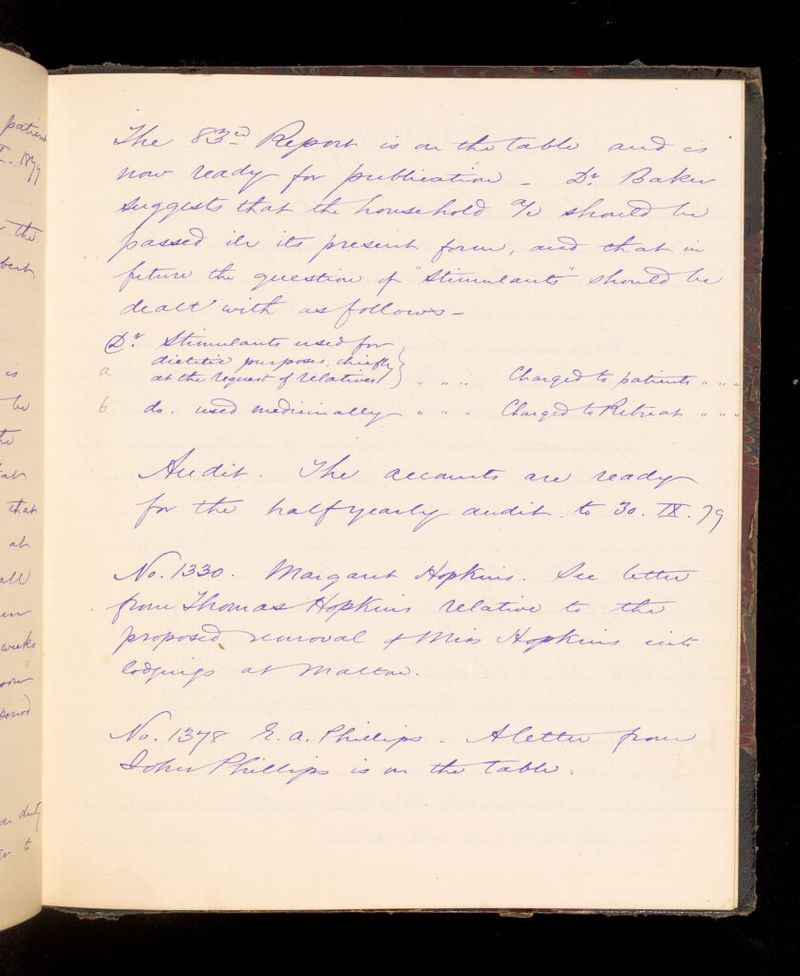 patient
. 1879
the
is
be
that
at
all
weeks
period
on duty
to
The 83rd Report is on the table and is
now ready for publication – Dr Baker
suggests that the household a/c should be
passed in its present form, and that in
future the question of "Stimulants" should be
dealt with as follows –
Dr Stimulants used for
a dietetic purposes, chiefly
at the request of relatives } " " " Charged to patients " " "
b do. used medicinally " " " Charged to Retreat " " "
Audit. The accounts are ready
for the half yearly audit to 30. IX. 79
No. 1330. Margaret Hopkins. See letter
from Thomas Hopkins relative to the
proposed removal of Miss Hopkins into
lodgings at Malton.
No. 1378 E. A. Phillips. A letter from
John Phillips is on the table.